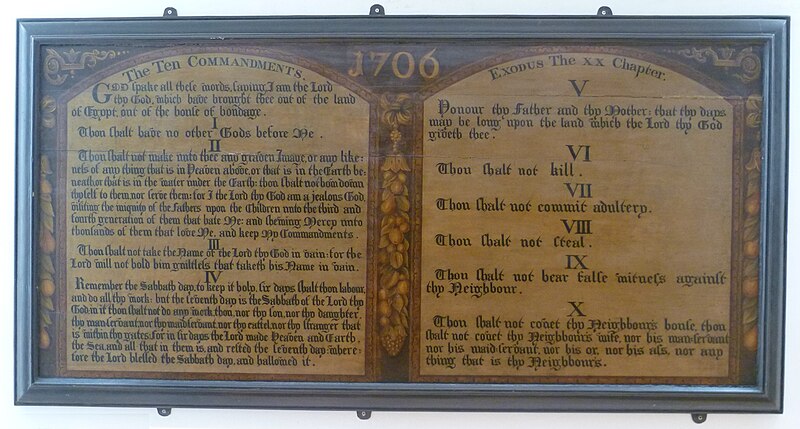 The Ten Commandments.
GOD spake all these words, saying, I am the Lord
thy God, which have brought thee out of the land
of Egypt, out of the house of bondage.
I
Thou shalt have no other Gods before Me.
II
Thou shalt not make unto thee any graven Image, or any like-
ness of any thing that is in Heaven above, or that is in the Earth be-
neath, or that is in the water under the Earth: thou shalt not bow down
thyself to them, nor serve them: for I the Lord thy God am a jealous God,
visiting the iniquity of the fathers upon the Children unto the third and
fourth generation of them that hate Me: and shewing Mercy unto
thousands of them that love Me, and keep My Commandments.
III
Thou shalt not take the Name of the Lord thy God in vain: for the
Lord will not hold him guiltless that taketh his Name in vain.
IV
Remember the Sabbath day, to keep it holy, six days shalt thou labour,
and do all thy work: but the seventh day is the Sabbath of the Lord thy
God, in it thou shalt not do any work, thou, nor thy son, nor thy daughter,
thy man-servant, nor thy maid-servant, nor thy cattel, nor thy stranger that
is within thy gates: for in six days the Lord made Heaven and Earth,
the Sea, and all that in them is, and rested the seventh day: where-
fore the Lord blessed the Sabbath day, and hallowed it.
1706
Exodus The XX Chapter.
V
Honour thy Father and thy Mother: that thy days
may be long upon the land which the Lord thy God
giveth thee.
VI
Thou shalt not kill.
VII
Thou shalt not commit adultery.
VIII
Thou shalt not steal.
IX
Thou shalt not bear false witness against
thy Neighbour.
X
Thou shalt not covet thy Neighbours house, thou
shalt not covet thy Neighbours wife, nor his man-servant
nor his maid-servant, nor his ox, nor his ass, nor any
thing that is thy Neighbours.